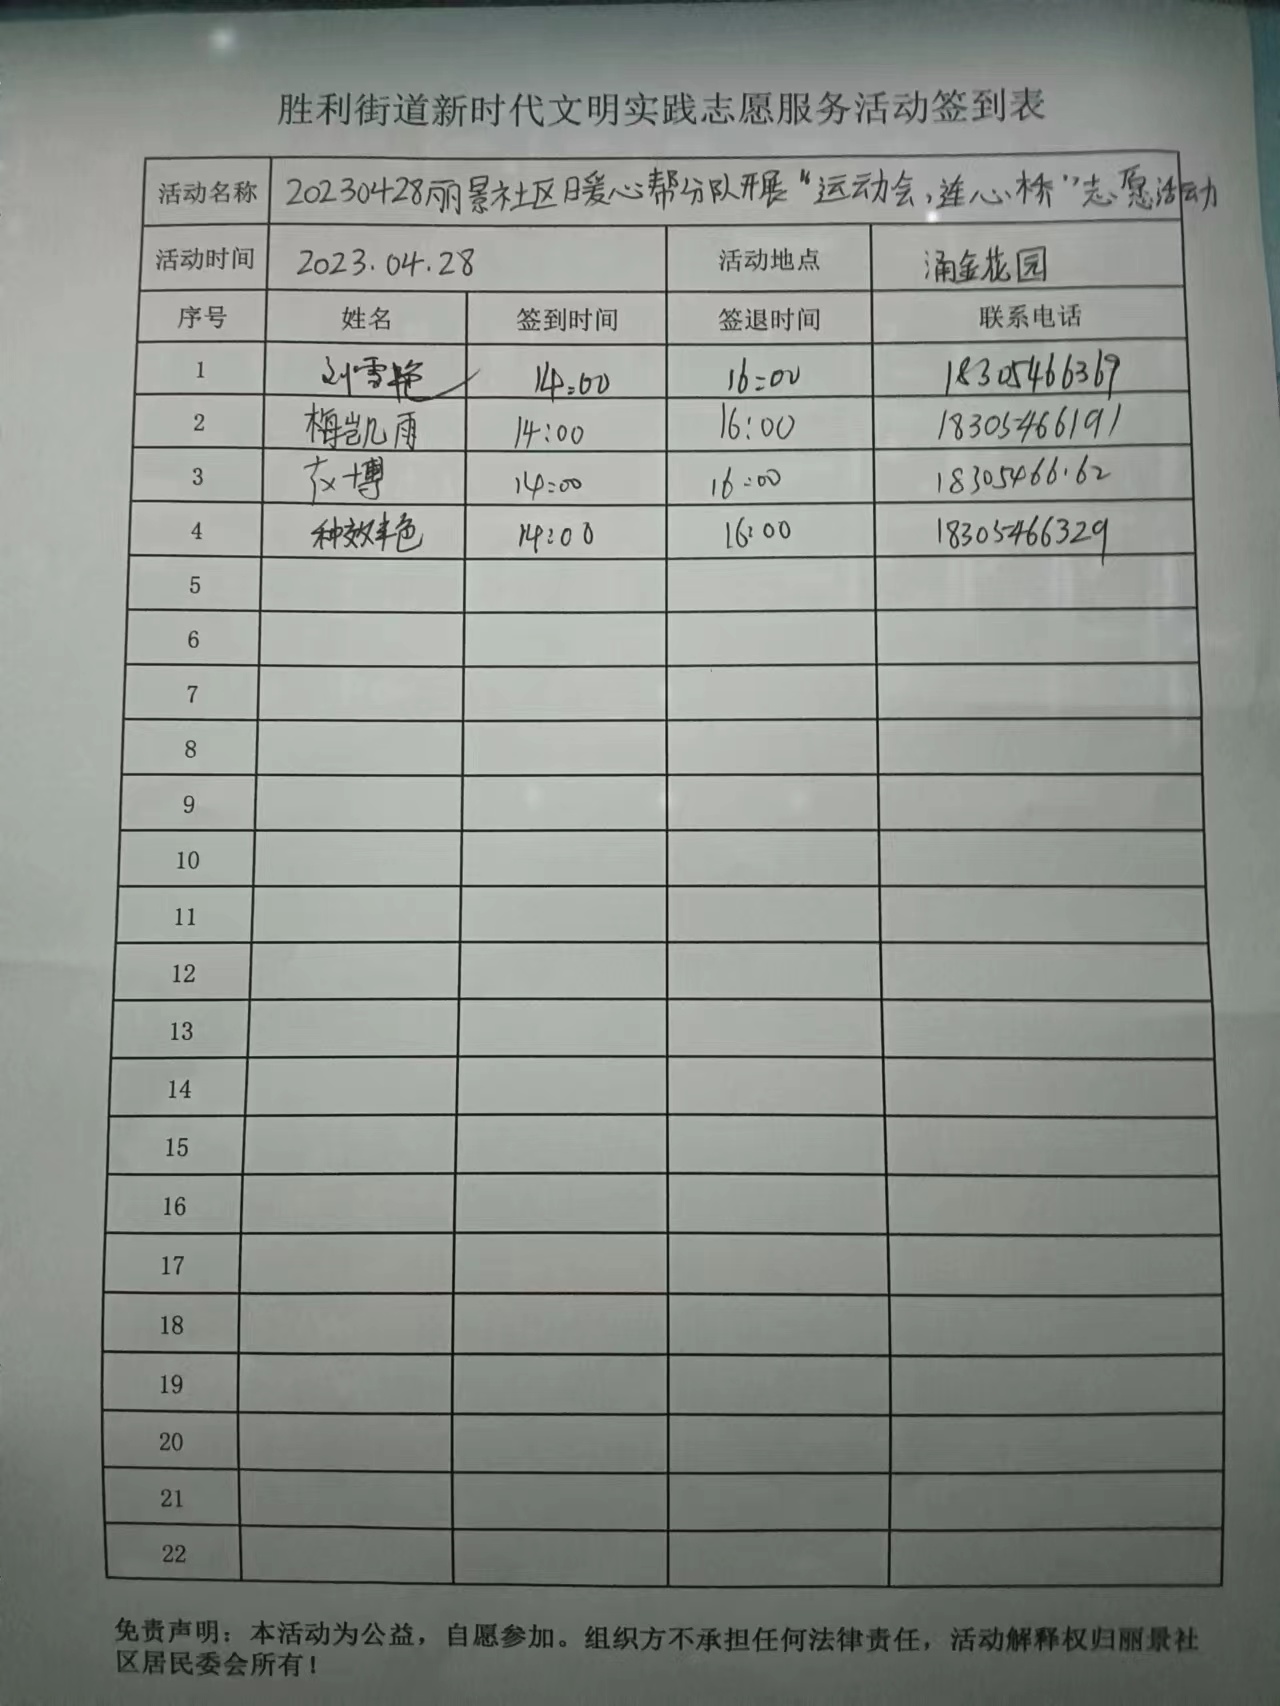 胜利街道新时代文明实践志愿服务活动签到表
活动名称 20230428丽景社区暖心帮分队开展“运动会,连心桥”志愿活动
活动时间 2023.04.28 活动地点 涌金花园
序号 姓名 签到时间 签退时间 联系电话
1 刘雪艳 14:00 16:00 18305466369
2 梅凯雨 14:00 16:00 18305466191
3 博 14:00 16:00
4 种效艳 14:00 16:00 18305466329
5
6
7
8
9
10
11
12
13
14
15
16
17
18
19
20
21
22
免责声明：本活动为公益，自愿参加。组织方不承担任何法律责任，活动解释权归丽景社
区居民委会所有！